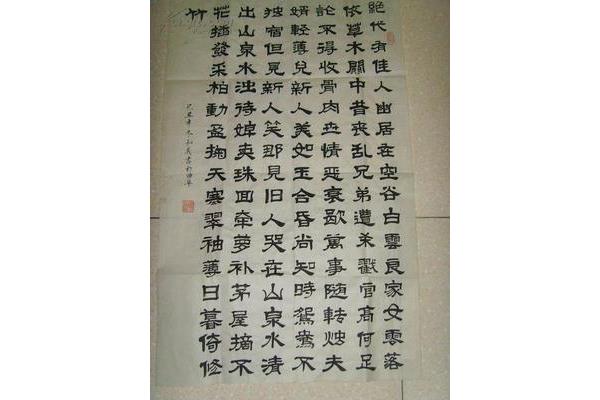 絕代有佳人幽居在空谷白雲良家女零落
依草木關中昔喪乱兄弟遭杀戳官高何足
論不得收骨肉世情惡衰歇萬事随转烛夫
婿輕薄兒新人美如玉合昏尚知時鴛鴦不
独宿但見新人笑那見旧人哭在山泉水清
出山泉水浊待婢卖珠回牽萝补茅屋摘不
花插發采柏動盈掬天寒翠袖薄日暮倚修
竹
己丑年冬